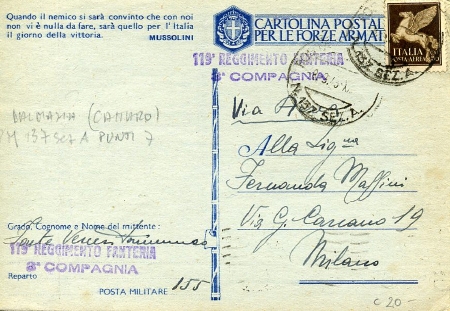 Quando il nemico si sarà convinto che con noi
non vi è nulla da fare, sarà quello per l'Italia
il giorno della vittoria.
MUSSOLINI
CARTOLINA POSTALE
PER LE FORZE ARMAT
119° REGGIMENTO FANTERIA
8ª COMPAGNIA
ITALIA
POSTA AEREA
N. 137 SEZ. A.
N. 137 SEZ. A.
DALMAZIA
PM 137 SEZ A PUNTI 7
Via
Alla Signa
Fernanda Maffini
Via G. Carcano 19
Milano
Grado, Cognome e Nome del mittente :
119° REGGIMENTO FANTERIA
8ª COMPAGNIA
Reparto
POSTA MILITARE 155
C 20-